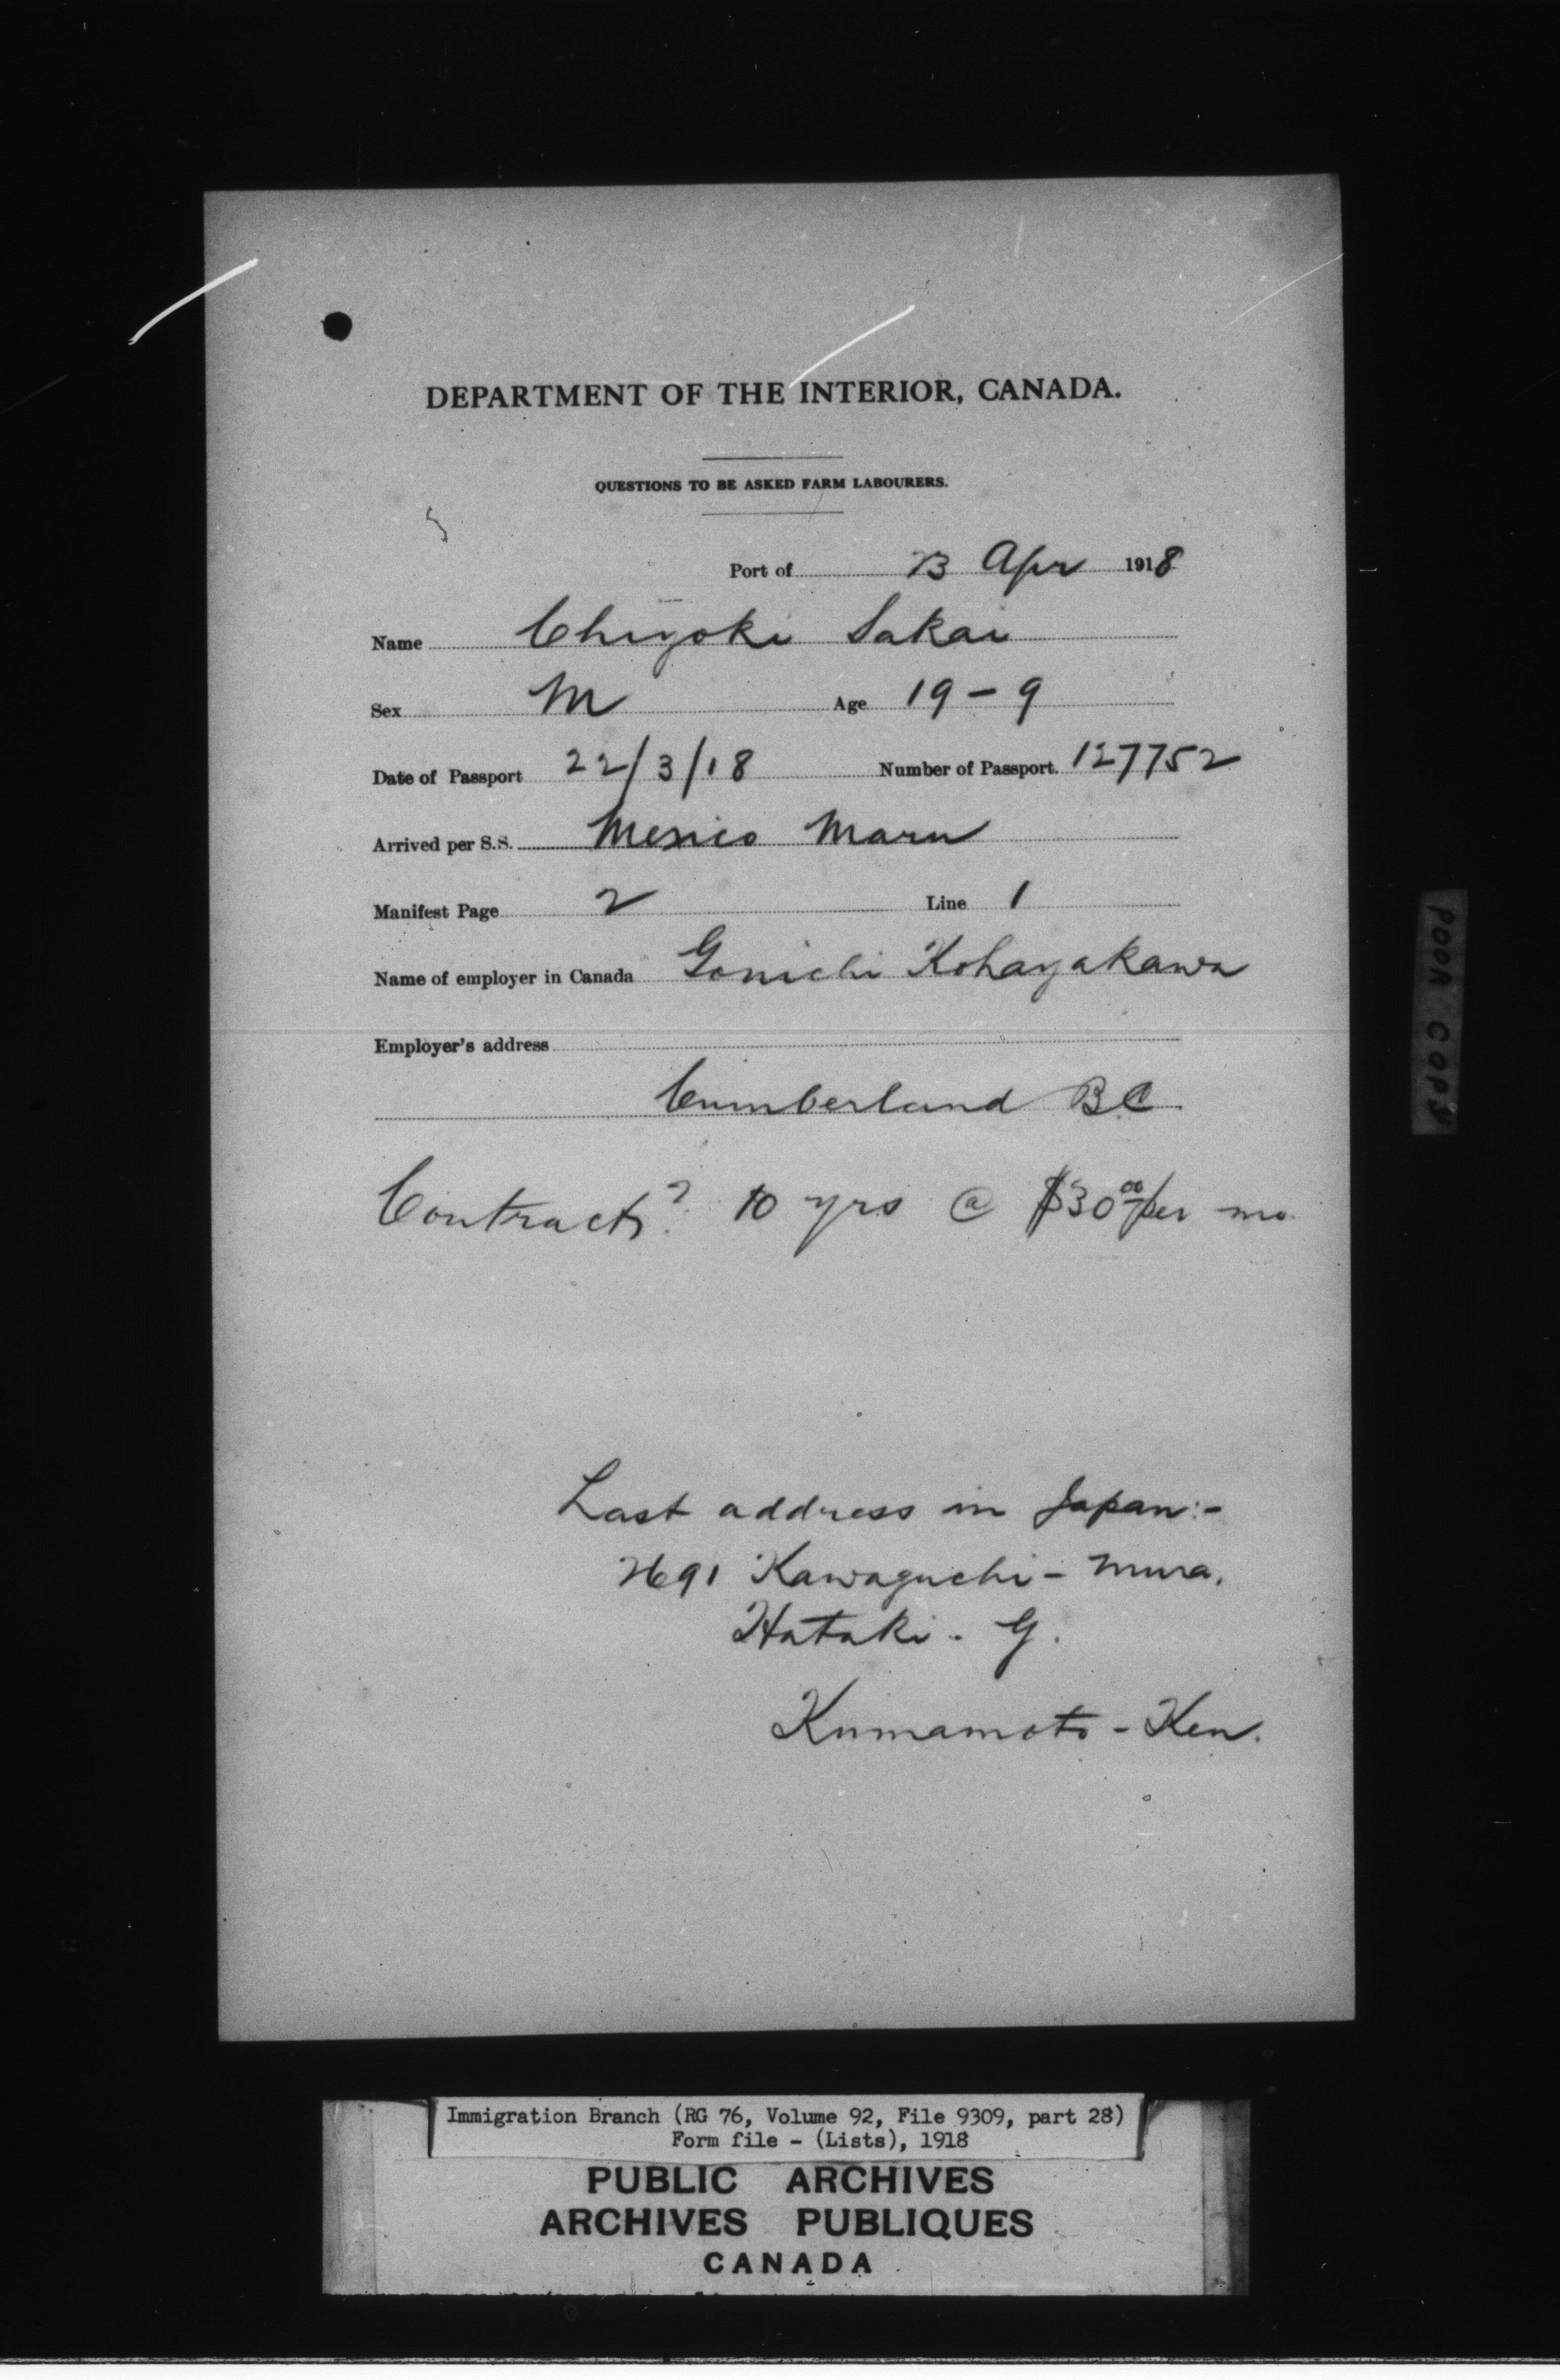 DEPARTMENT OF THE INTERIOR, CANADA.
QUESTIONS TO BE ASKED FARM LABOURERS.
Port of 23 Apr 1918
Name Chiyoki Sakai
Sex M Age 19-9
Date of Passport 22/3/18 Number of Passport. 127752
Arrived per S.S. Mexico Maru
Manifest Page 2 Line 1
Name of employer in Canada Gonichi Kohayakawa
Employer's address
Cumberland BC
Contract? 10 yrs @ $30 00/per mo
Last address in Japan:-
2691 Kawaguchi-Mura,
Hotaki-G.
Kumamoto-Ken.
POOR COPY
Immigration Branch (RG 76, Volume 92, File 9309, part 28)
Form file - (Lists), 1918
PUBLIC ARCHIVES
ARCHIVES PUBLIQUES
CANADA